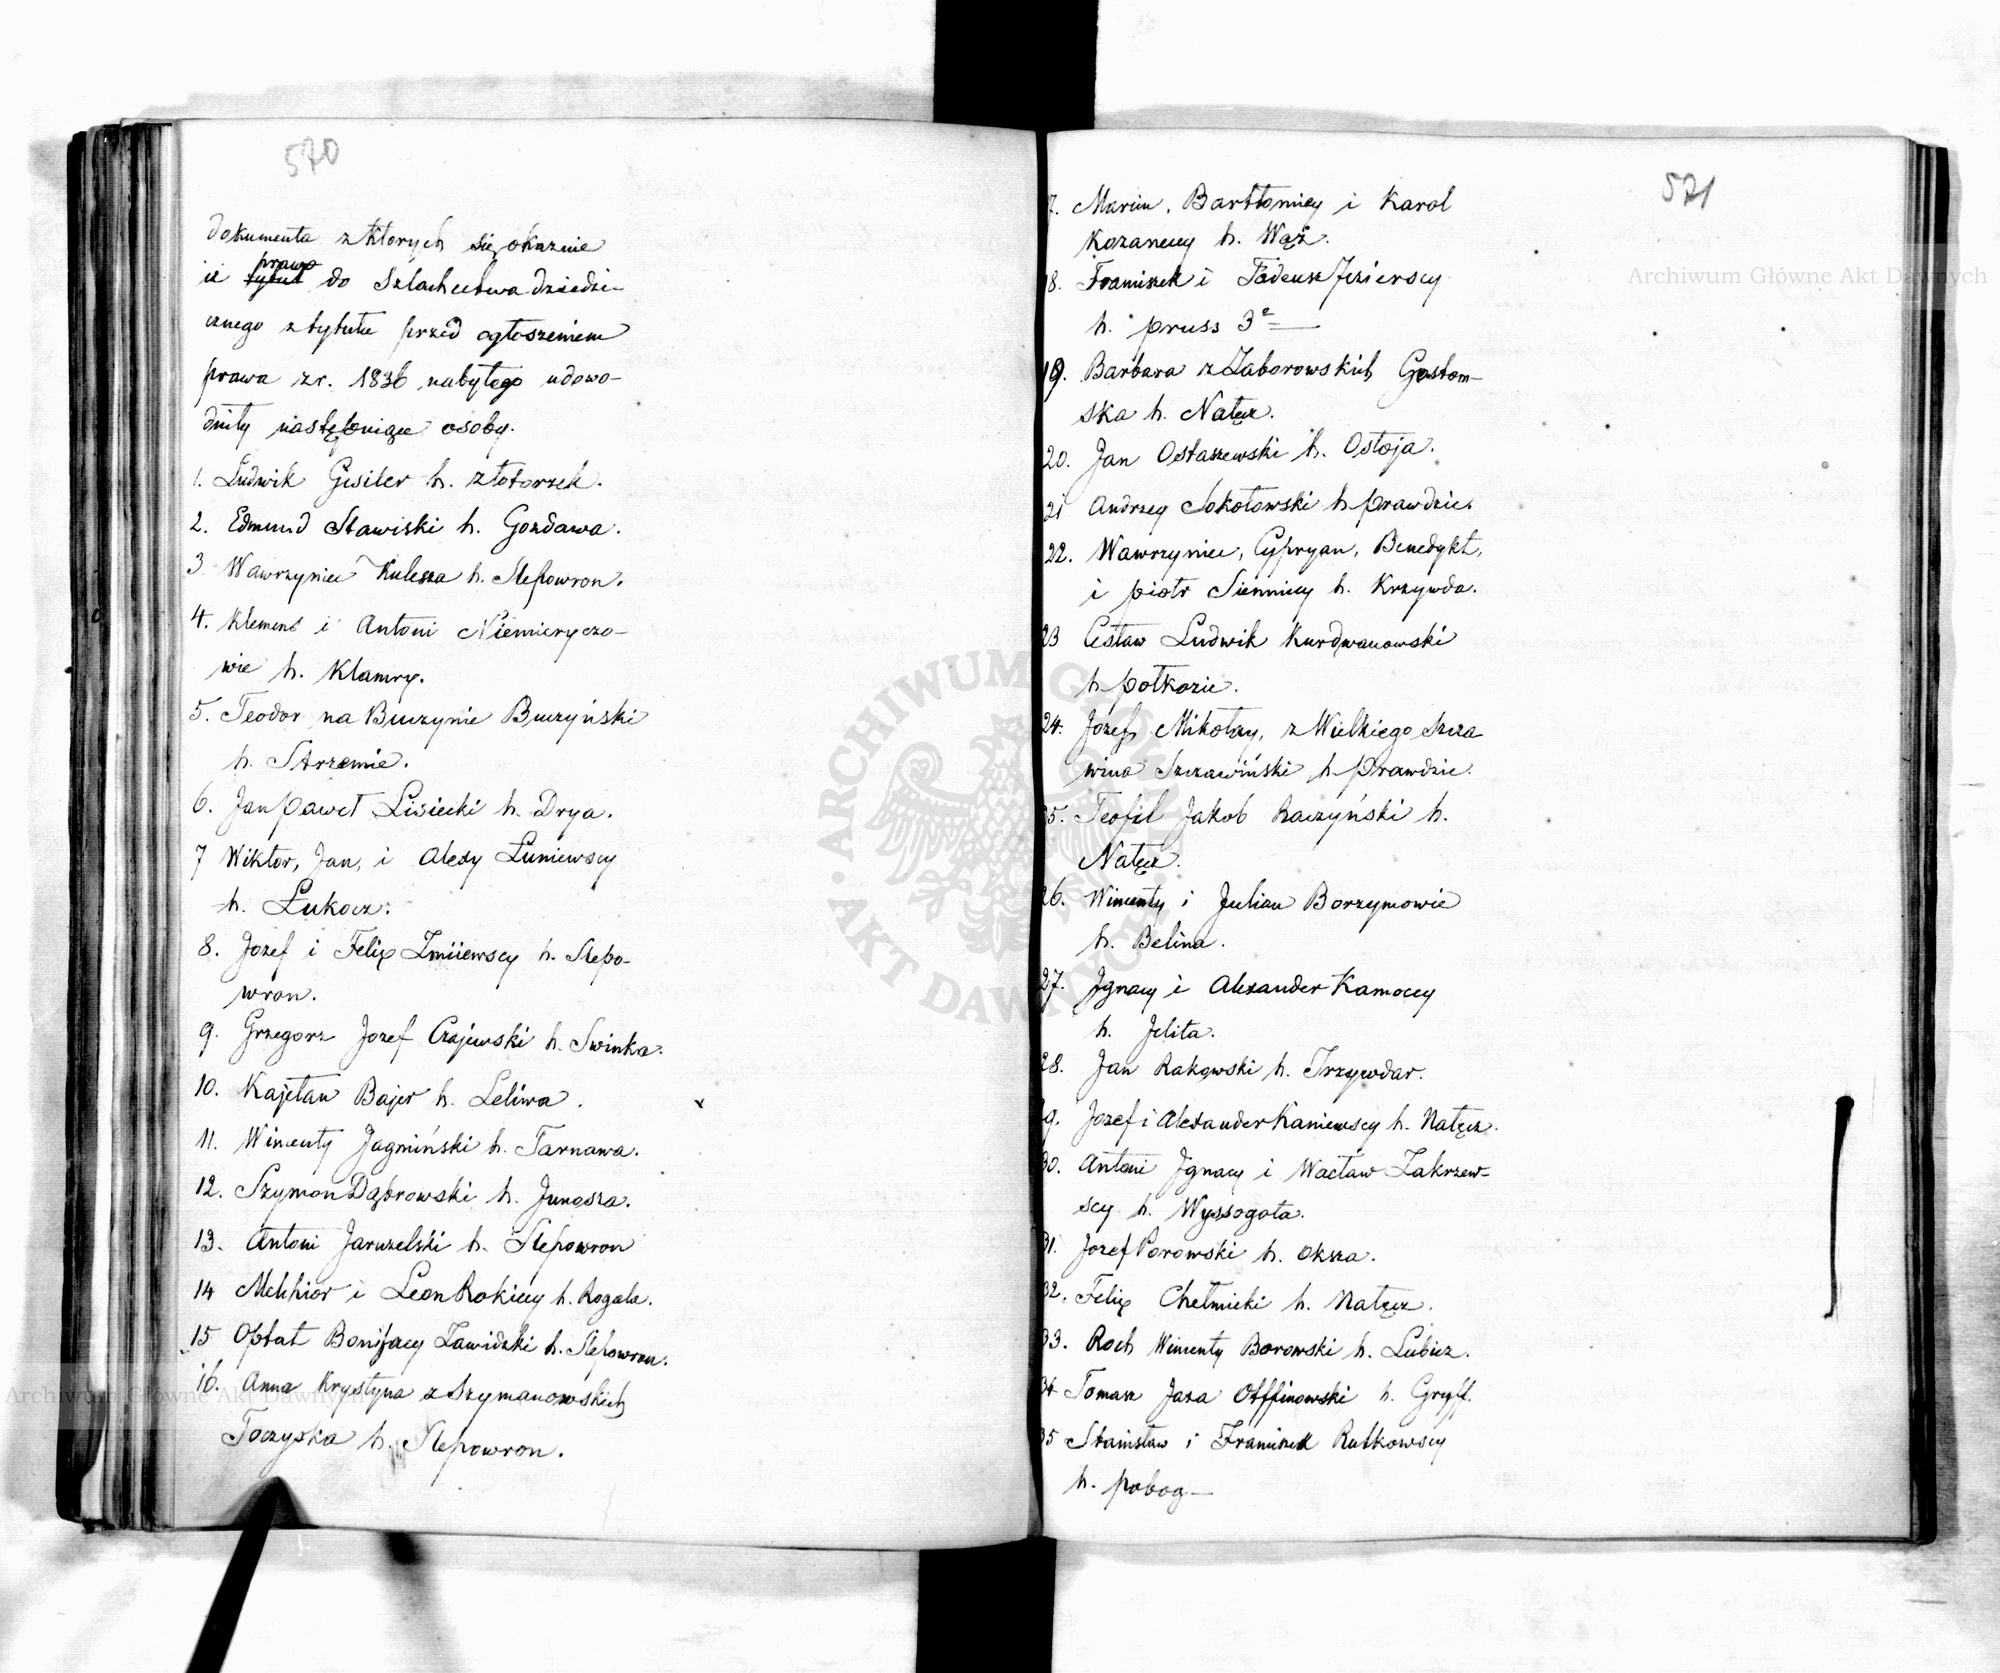 570
dokumenta z których się okazuie
iż prawo tytuł do Szlachectwa dziedzi-
cznego z tytułu przed ogłoszeniem
prawa z r. 1836 nabytego udowo-
dniły następuiące osoby.
1. Ludwik Gisiler h. Złotorzek.
2. Edmund Stawiski h. Gozdawa.
3 Wawrzyniec Kulesza h. Slepowron.
4. Klemens i Antoni Niemieryczo-
wie h. Klamry.
5. Teodor na Buczynie Buczyński
h. Strzemie.
6. Jan Paweł Lisiecki h. Drya.
7 Wiktor, Jan, i Alexy Łuniewscy
h. Łukocz.
8. Jozef i Felix Zmiiewscy h. Slepo-
wron.
9. Grzegorz Jozef Czajewski h. Swinka.
10. Kajetan Bajer h. Leliwa.
11. Wincenty Jagmiński h. Tarnawa.
12. Szymon Dąbrowski h. Junosza.
13. Antoni Jaruzelski h. Slepowron
14 Melchior i Leon Rokiccy h. Rogala.
15 Optat Bonifacy Zawidzki h. Slepowron.
16. Anna Krystyna z Szymanowskich
Toczyska h. Slepowron.
571
7. Marcin, Bartłomiey i Karol
Kozaneccy h. Wąż.
18. Franciszek i Tadeusz Jezierscy
h. pruss 3e
19. Barbara z Zaborowskich Gostom-
ska h. Nałęcz.
20. Jan Ostaszewski h. Ostoja.
21 Andrzey Sokołowski h. prawdzic.
22. Wawrzyniec, Cypryan, Benedykt,
i piotr Siennicy h. Krzywda.
23 Cesław Ludwik Kurdwanowski
h. połkozic.
24. Jozef Mikołay, z Wielkiego Szcza
wina Szczawiński h. prawdzic.
25. Teofil Jakob Raczyński h.
Nałęcz.
26. Wincenty i Julian Borzymowie
h. Belina.
27. Jgnacy i Alexander Kamoccy
h. Jelita.
28. Jan Rakowski h. Trzywdar.
9. Jozef i Alexander Kaniewscy h. Nałęcz.
30. Antoni Jgnacy i Wacław Zakrzew-
scy h. Wyssogota.
31. Jozef Porowski h. Oksza.
32. Felix Chełmicki h. Nałęcz.
33. Roch Wincenty Borowski h. Lubicz.
34 Tomasz Jaxa Otffinowski h. Gryff.
35 Stanisław i Franciszek Rutkowscy
h. pobog
ARCHIWUM GŁÓWNE AKT DAWNYCH
Archiwum Główne Akt Dawnych
Archiwum Główne Akt Dawnych